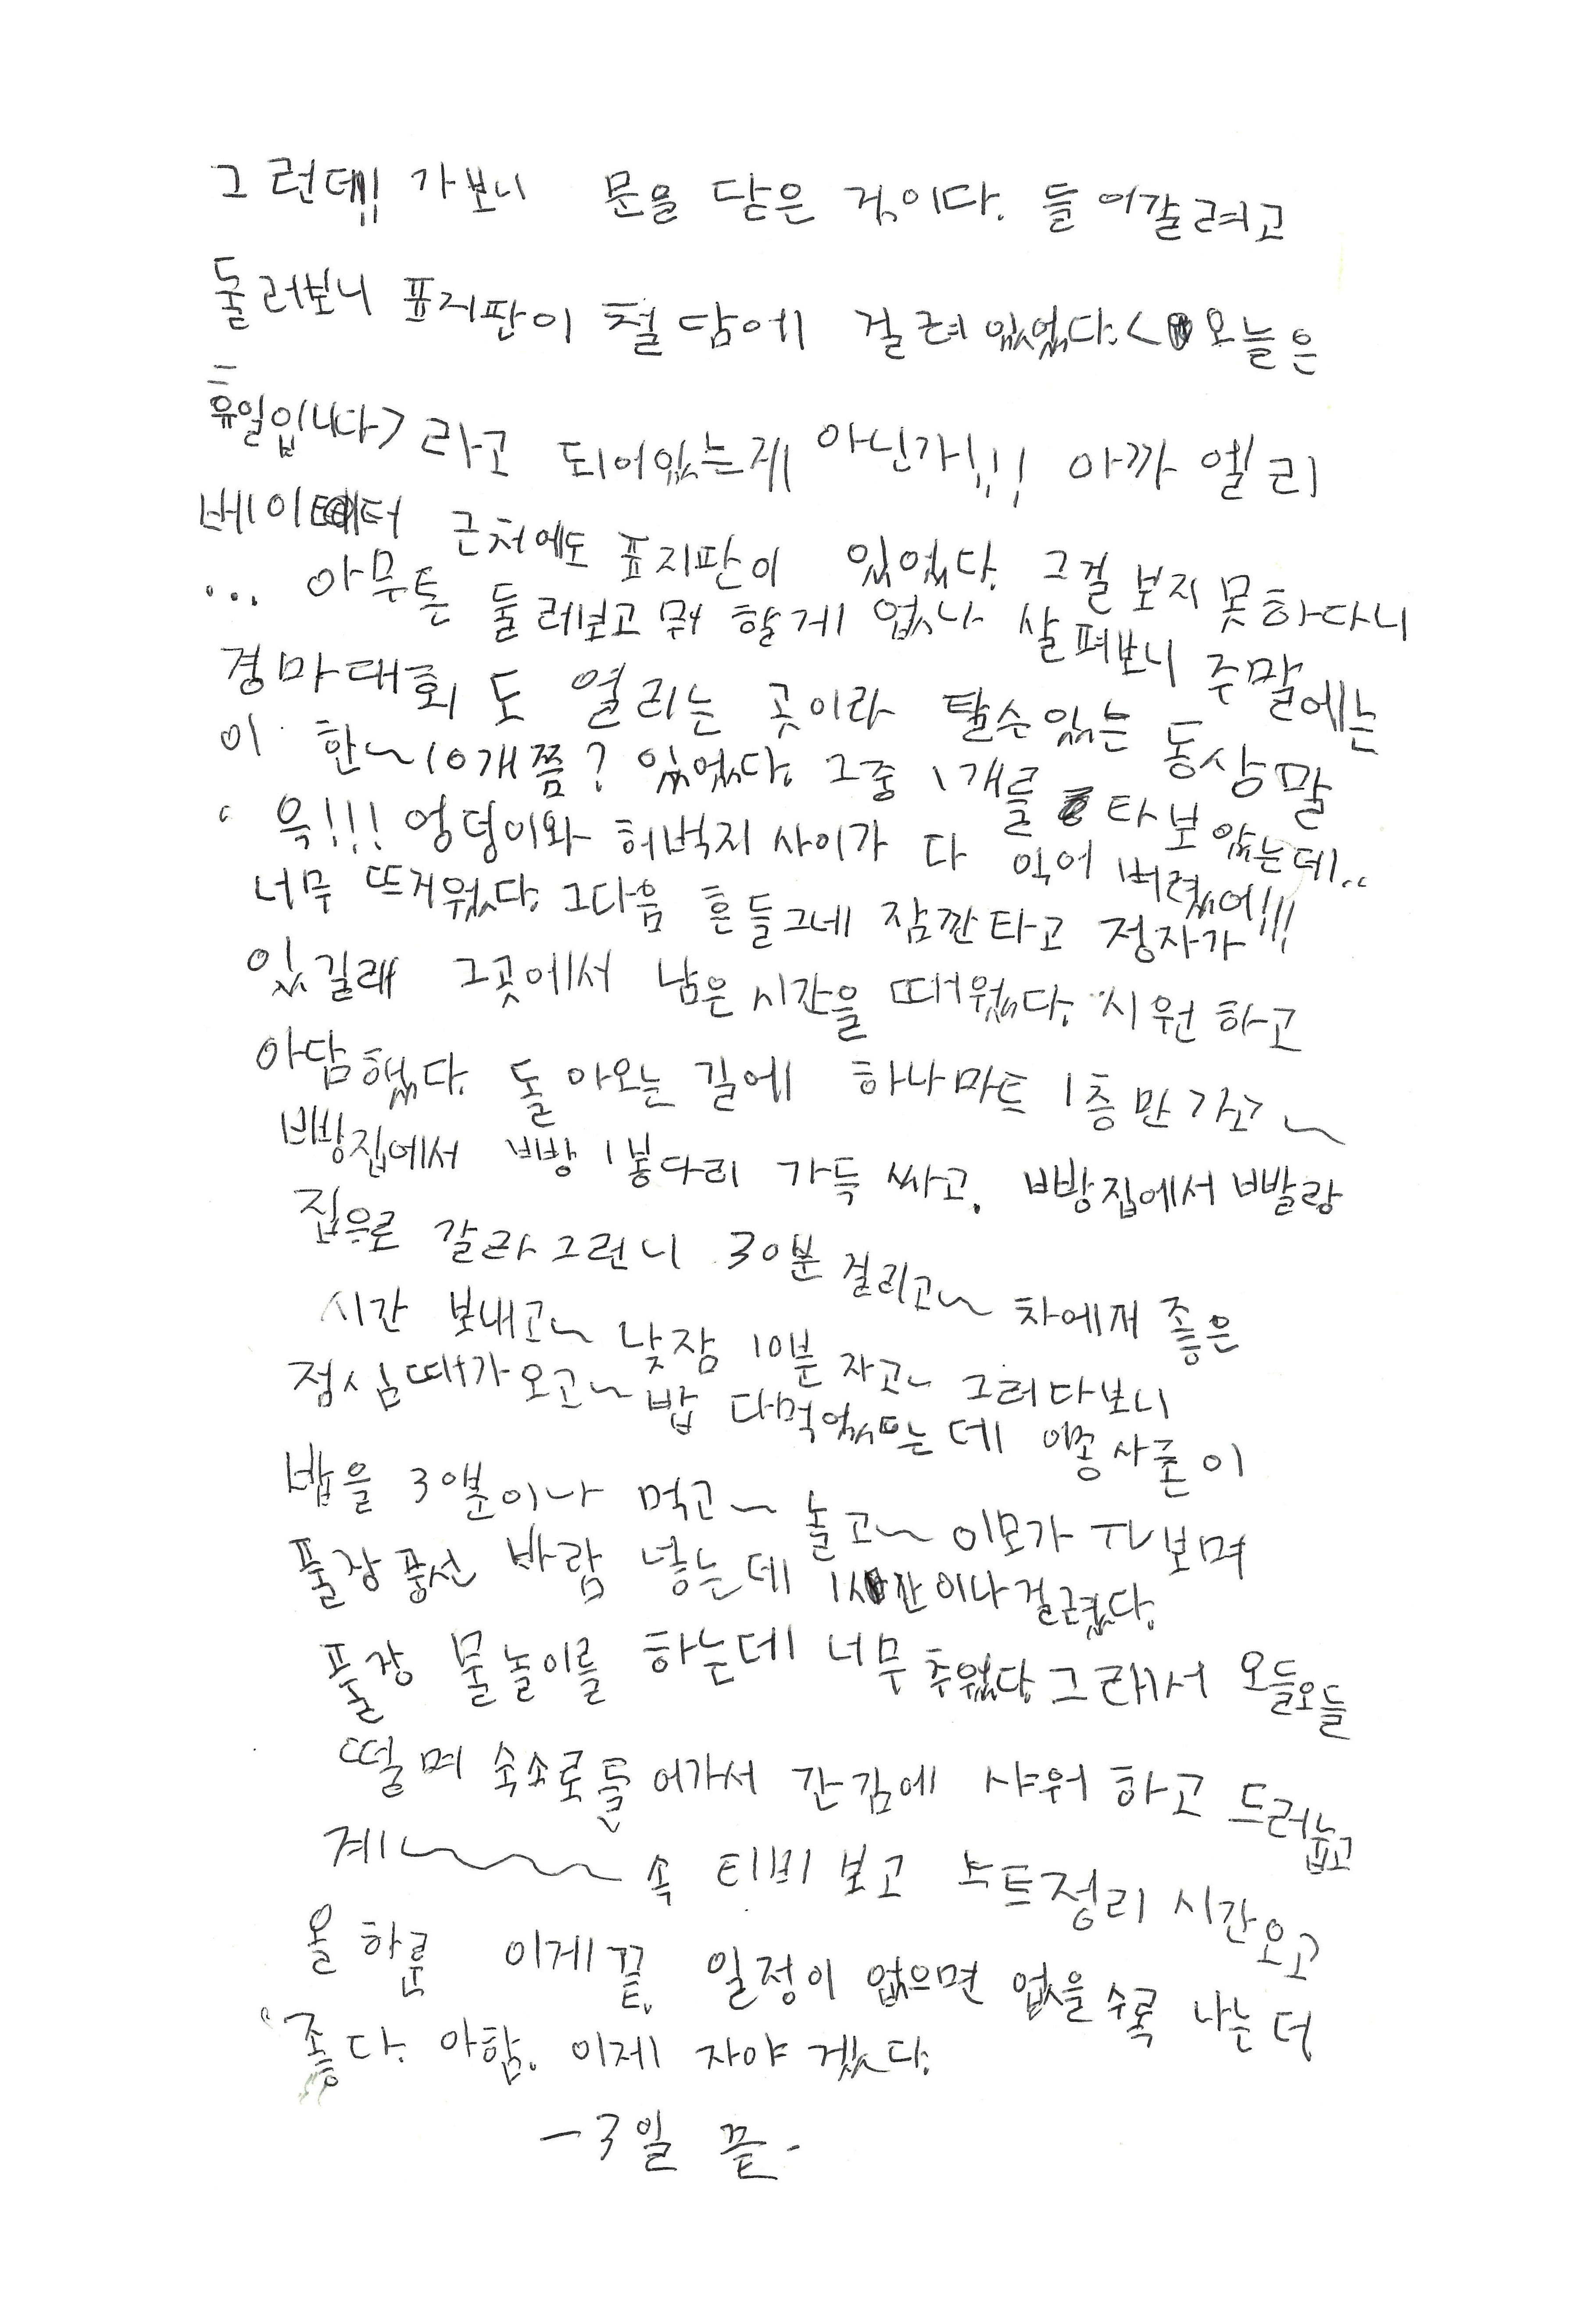 그런데!! 가보니 문을 닫은 것이다. 들어갈려고
둘러보니 표지판이 철담에 걸려있었다. <오늘은
휴일입니다> 라고 되어있는게 아닌가!!! 아까 엘리
베이터 근처에도 표지판이 있었다. 그걸 보지 못하다니
... 아무튼 둘러보고 뭐 할게 없나 살펴보니 주말에는
경마대회도 열리는 곳이라 탈수있는 동상말
이 한~10개쯤? 있었다. 그중 1개를 타보았는데..
" 윽!!! 엉덩이와 허벅지 사이가 다 익어 버렸어!!!
너무 뜨거웠다. 그다음 흔들그네 잠깐타고 정자가
있길래 그곳에서 남은 시간을 때웠다. 시원하고
아담했다. 돌아오는 길에 하나마트 1층만 가고~
빵집에서 빵 1봉다리 가득 싸고. 빵집에서 빨랑
집으로 갈라그런니 30분 걸리고~ 차에저 좋은
시간 보내고~ 낮잠 10분 자고~ 그러다보니
점심때가 오고~ 밥 다먹었는데 이종사촌이
밥을 30분이나 먹고~ 놀고~ 이모가 TV보며
풀장풍선 바람 넣는데 1시간이나 걸렸다.
풀장 물놀이를 하는데 너무 추웠다. 그래서 오들오들
떨며 숙소로 들어가서 간김에 샤워 하고 드러눕고
계~~~~속 티비 보고 노트정리 시간오고
올 하룬 이게 끝. 일정이 없으면 없을수록 나는 더
좋다. 아함. 이제 자야겠다.
-3일 끝-